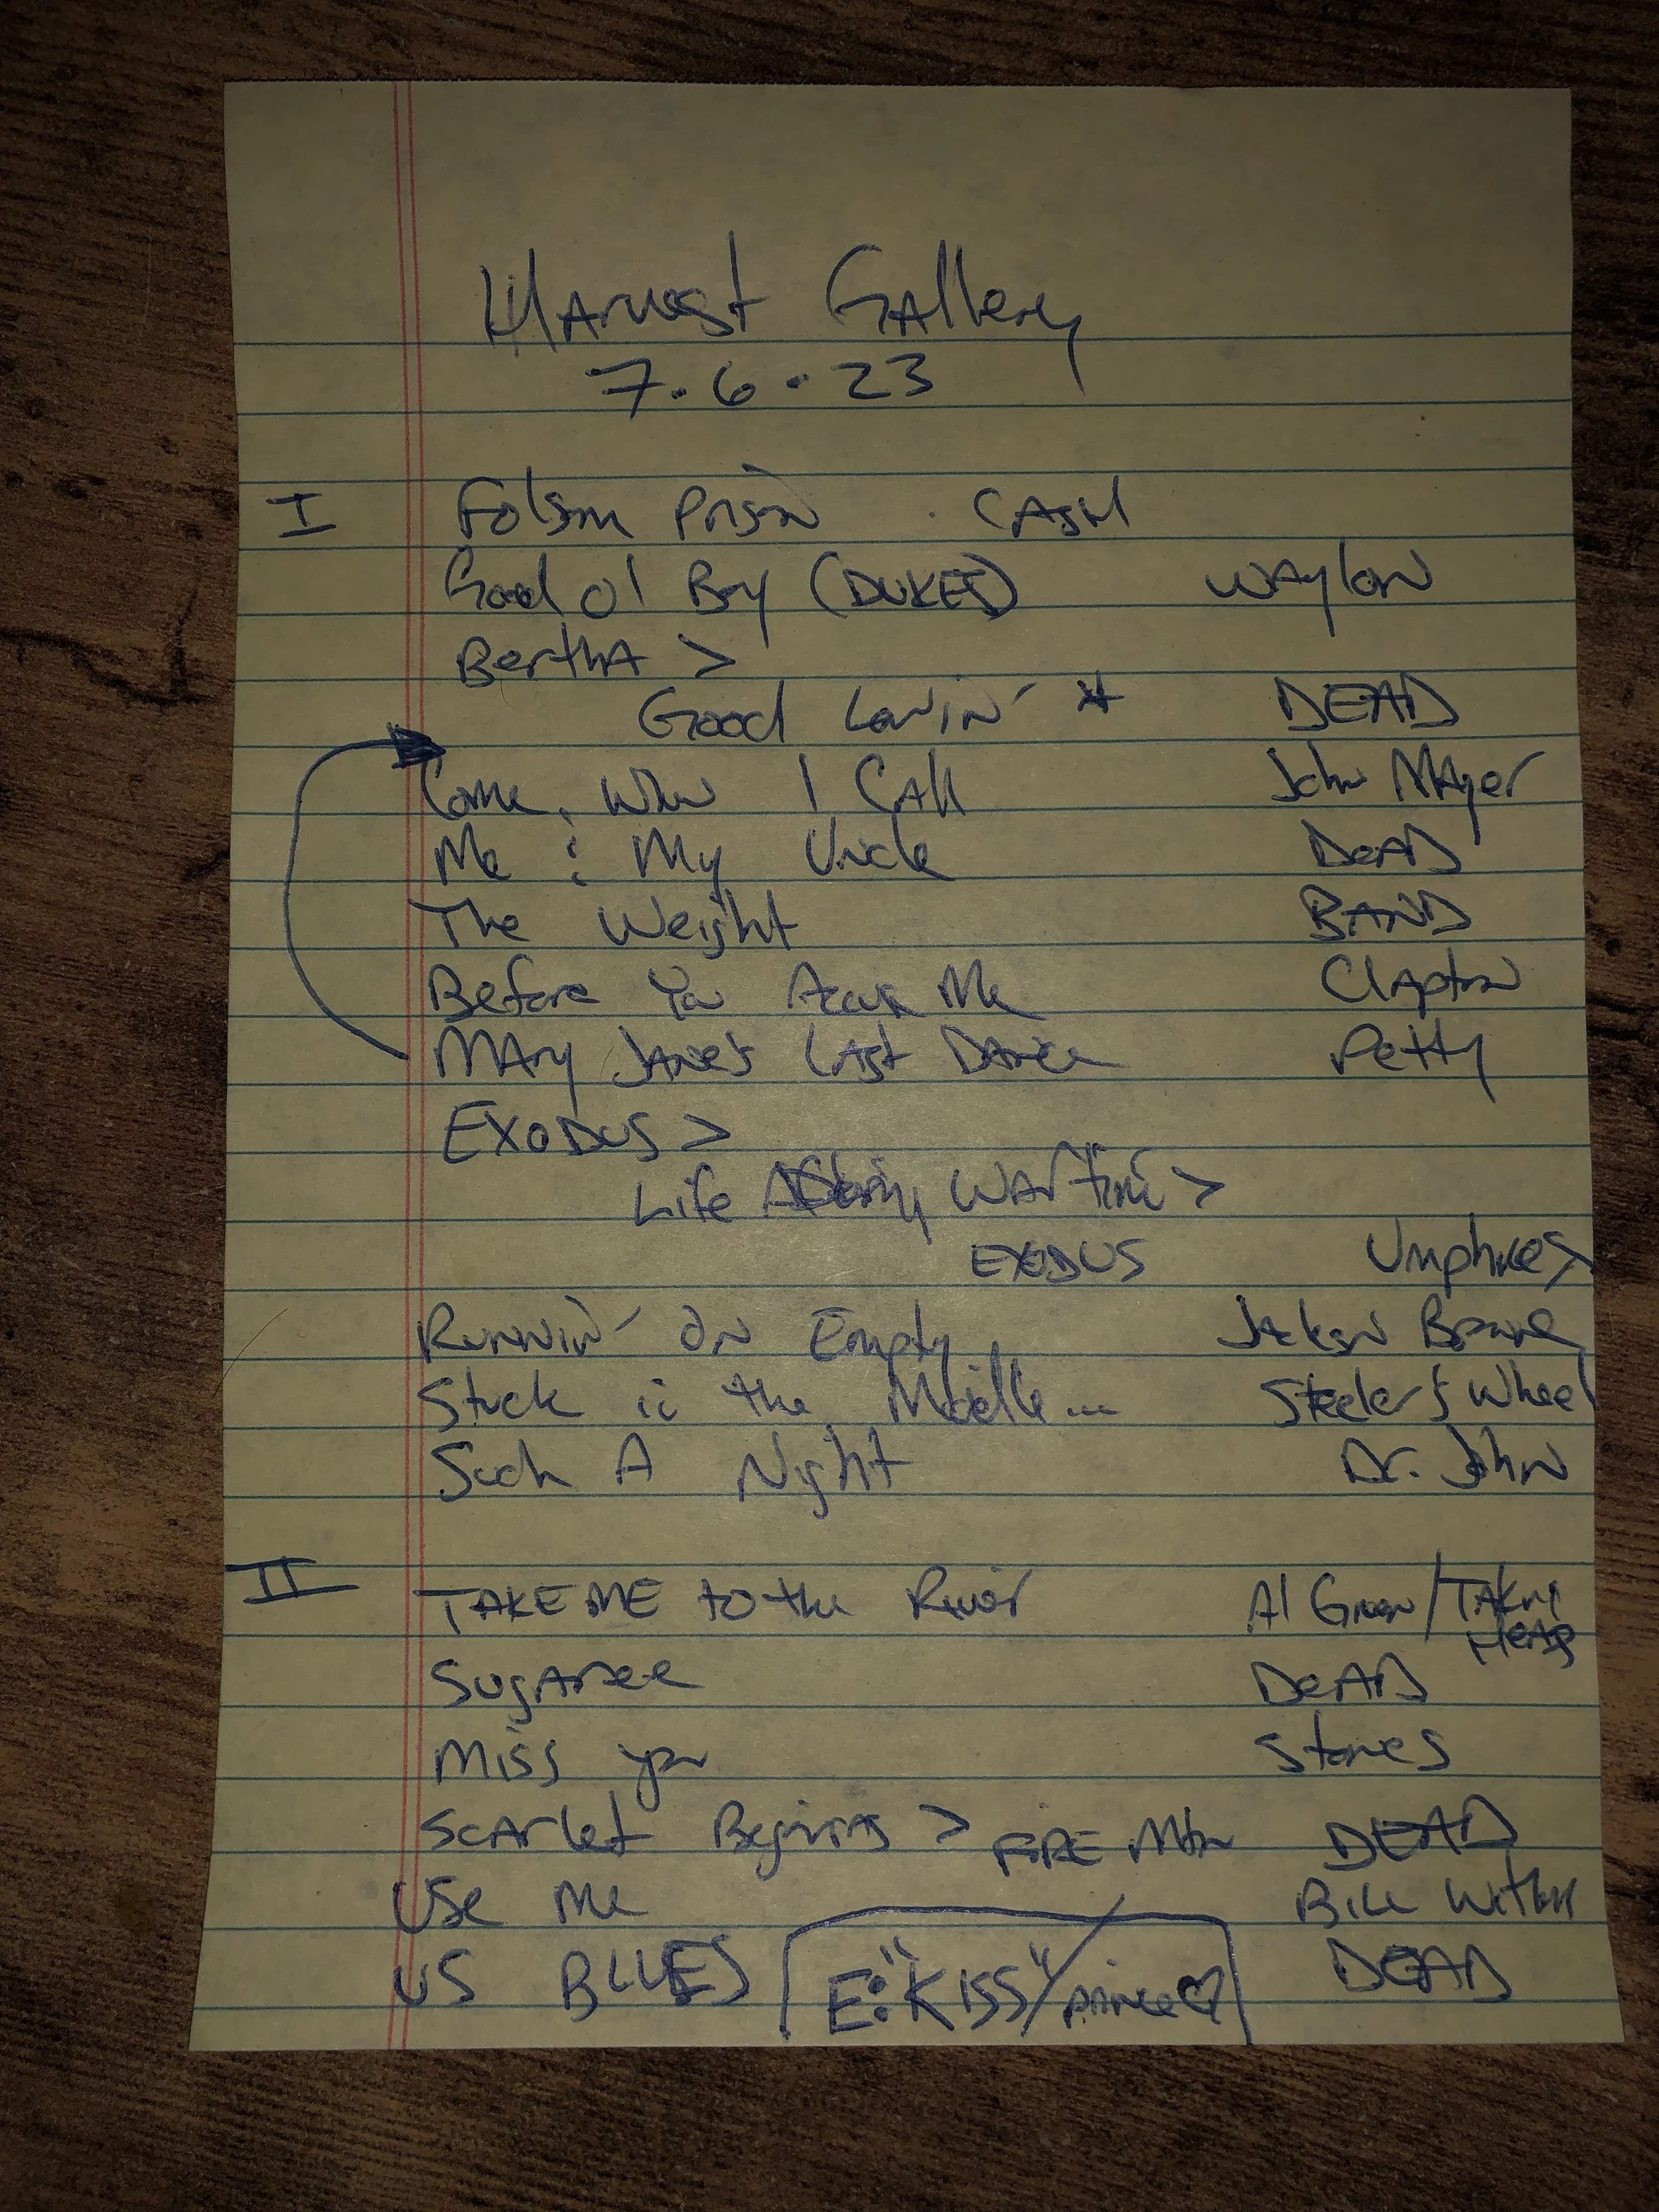 Harvest Gallery
7.6.23
I Folsom Prison . CASH
Good ol Boy (DUKES) WAylon
BerthA >
Good Lovin' * DEAD
Come, When I CAll John MAyer
Me & My Uncle DeAD
The Weight BAND
Before You Accuse Me Clapton
MAry JANe's LAst DANce Petty
EXODUS >
Life During WArtime >
EXODUS Umphrees
Runnin' On Empty Jackson Browne
Stuck in the Middle... Steelers Wheel
Such A Night Dr. John
II TAKE ME to the River Al Green/TAlking
HeAds
SugAree DeAD
Miss you Stones
ScArlet Beginings > FIRE Mtn DEAD
Use Me Bill Withers
US BLUES DEAD
E: "KISS"/prince♡